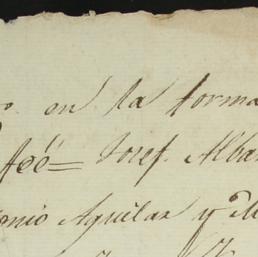 en la forma
feé = Josef. Alba
onio Aguilar y M